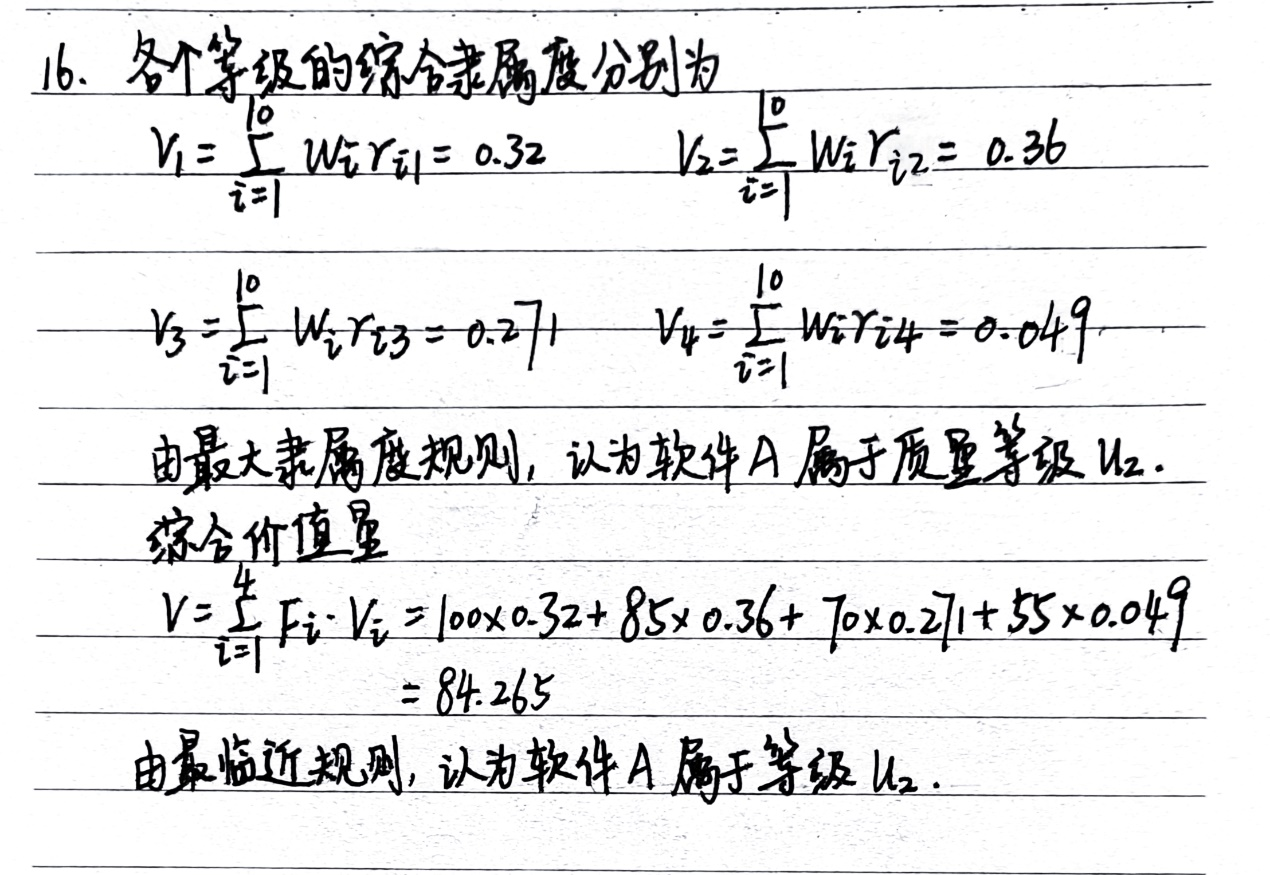 16. 各个等级的综合隶属度分别为
V₁ = ∑_{i=1}^{10} Wᵢ rᵢ₁ = 0.32  V₂ = ∑_{i=1}^{10} Wᵢ rᵢ₂ = 0.36
V₃ = ∑_{i=1}^{10} Wᵢ rᵢ₃ = 0.271  V₄ = ∑_{i=1}^{10} Wᵢ rᵢ₄ = 0.049.
由最大隶属度规则, 认为软件A属于质量等级 U₂.
综合价值量
V = ∑_{i=1}^{4} Fᵢ · Vᵢ = 100×0.32 + 85×0.36 + 70×0.271 + 55×0.049
= 84.265
由最临近规则, 认为软件A属于等级 U₂.